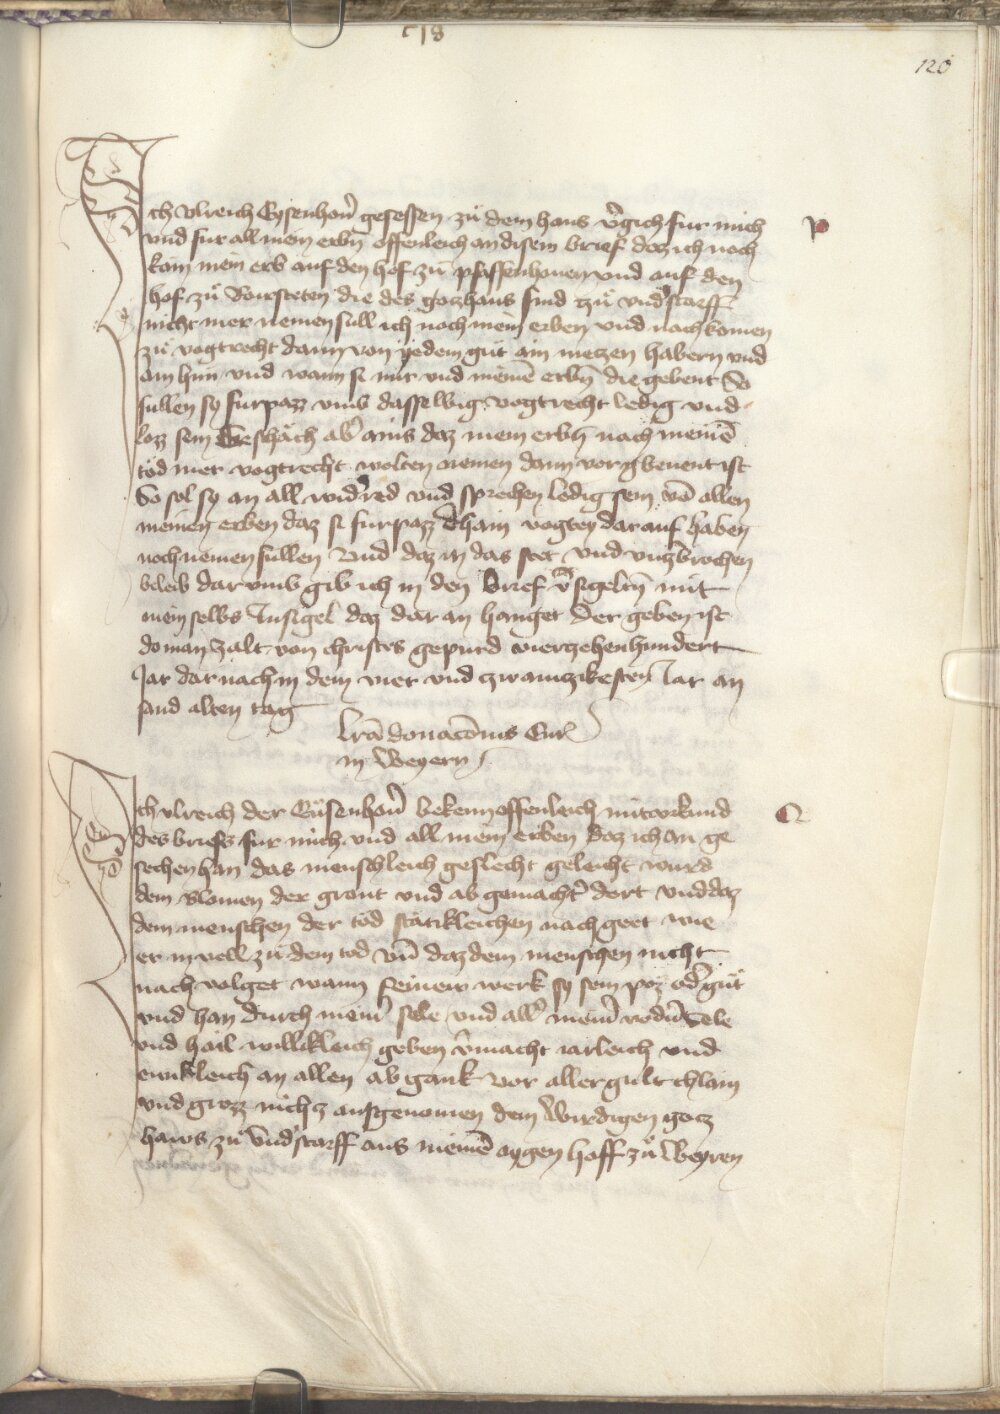 c18
120
Ich Vlreich Eysenhouer gesessen zů dem haus vͤrgich fur mich
vnd fur all mein erbn̄ offenleich an disem brief daz ich noch
kain mein erb auf den hof zů pfaffenhouen vnd auf den
hof zů Vorsteten die des gozhaus sind zů vnd'starff
nicht mer nemen sull ich noch mein erben vnd nachkomen
zů vogtrecht dann von yedem gůt ain meczen habern vnd
ain hůn vnd wann si mir vnd meinē erbn̄ die gebent So
sullen sy furpazz vmb dasselbig vogtrecht ledig vnd
lozz sein Geschäch ab' ains daz mein erbn̄ nach meinē
tod mer vogtrecht wolten nemen dann vorg'benent ist
So sol sy an all wid'red vnd sprechen ledig sein vō allen
meinen erben daz si furpazz dhain vogtey darauf haben
noch nemen sullen Vnd daz in das stet vnd vnzebrochen
beleib dar vmb gib ich in den brief v'sigelten mit
mein selbs Insigel daz dar an hanget Der geben ist
do man zalt von christs gepurd vierzehenhundert
Jar dar nach in dem vier vnd zwainczikesten Jar an
sand alten tag
lrā donacōnis Curie
in Weyern
P
Ich vlreich der Eůsenhou' bekenn offenleich mit vrkund
des briefs fur mich vnd all mein erben daz ich an ge
sechen han das menschleich geslecht geleicht wurd
dem Blomen der gront vnd ab gemacht' dort vnd daz
dem menschen der tod stätikleichen nach geet wie
er in well zů dem tod vn̄ daz dem menschen nicht
nach volget wann seinew werk sy sein poz od' gůt
vnd han durch mein' sele vnd all' mein' vodn̄ Sele
vnd hail willikleich geben v'macht iarleich vnd
ewikleich an allen abgank vor aller gult chlain
vnd grozz nichcz ausgenomen dem Wirdigen gocz
haws zů Vnd'starff aus meinē aygen hoff zů Weyren
Q